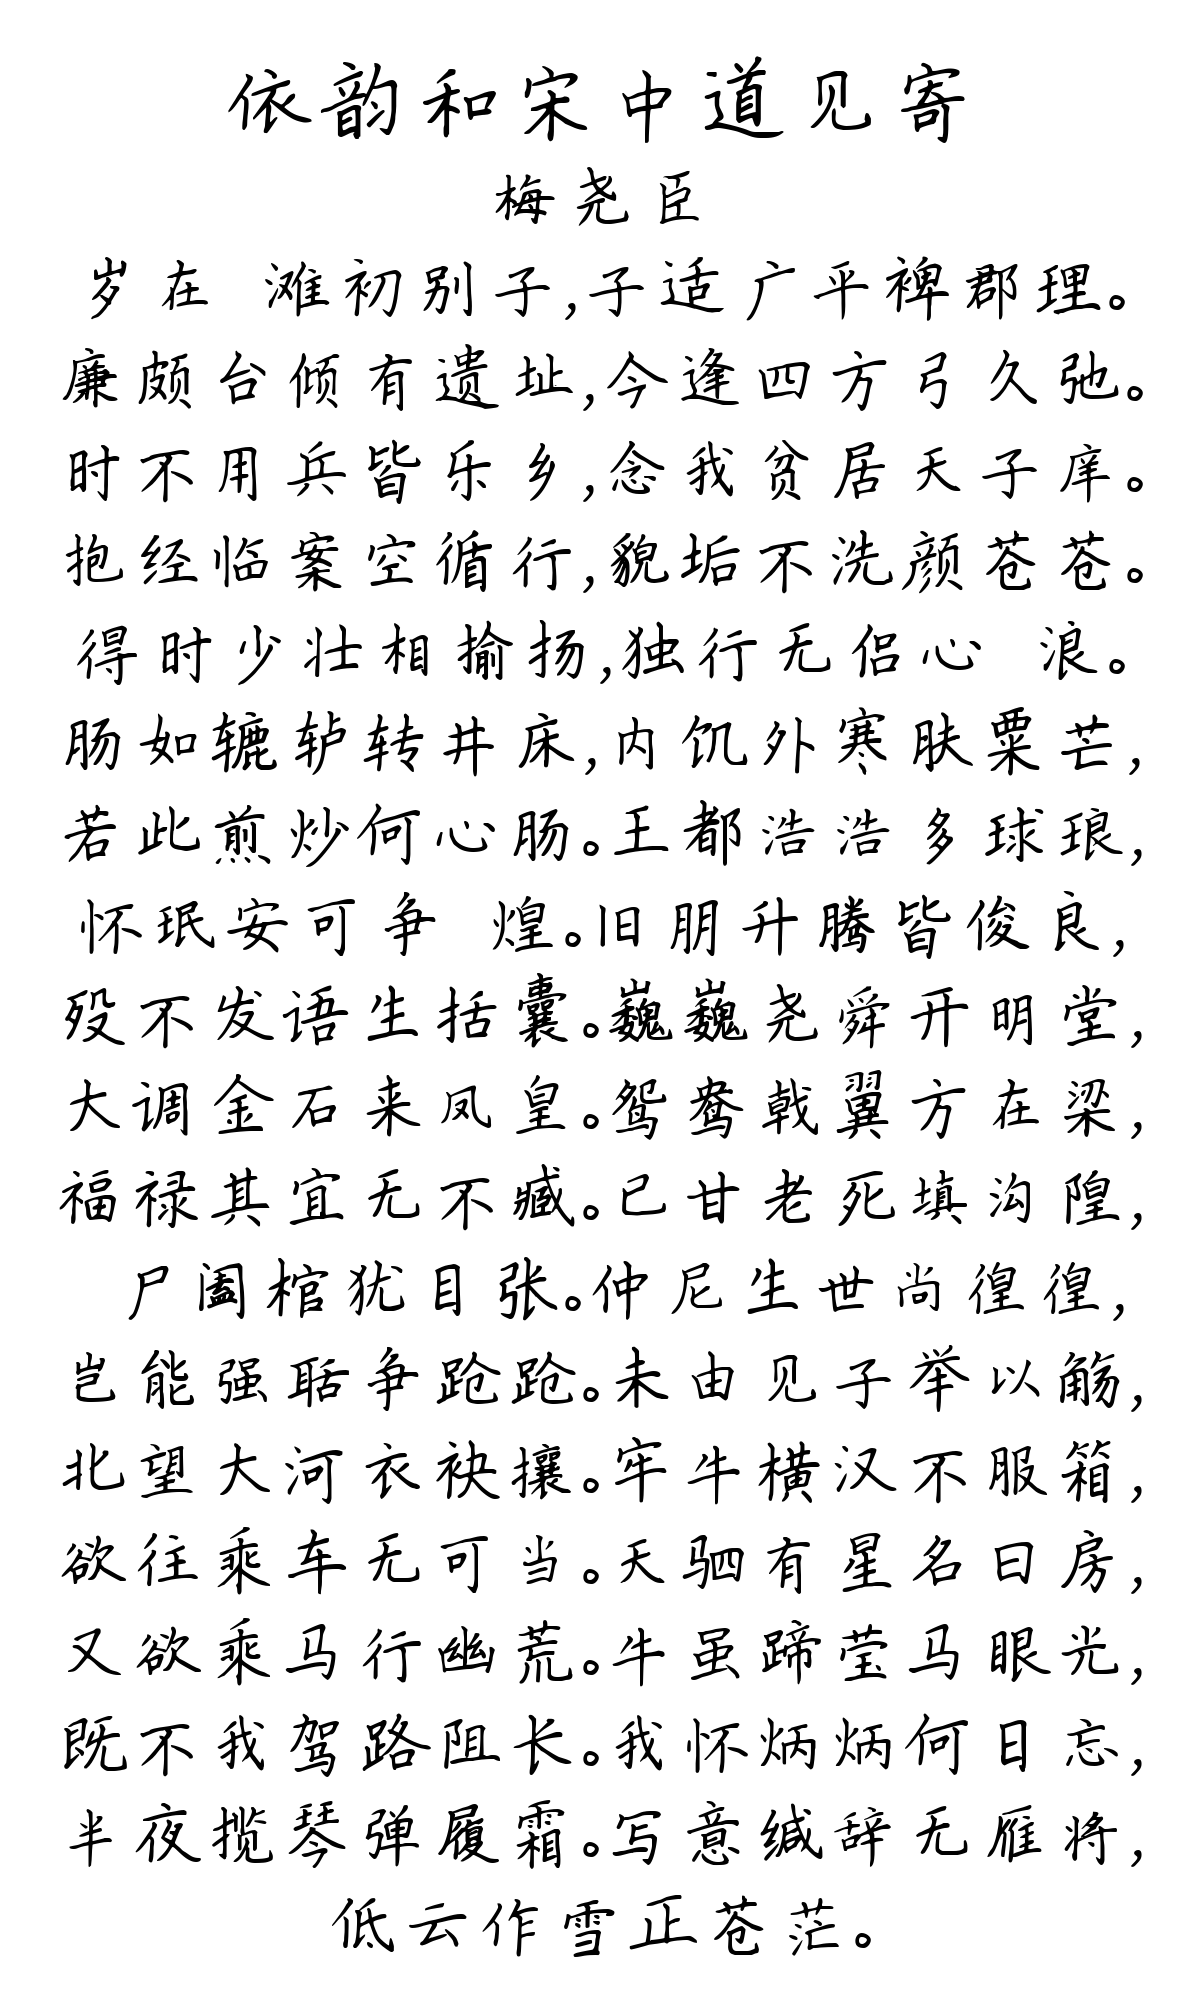 依韵和宋中道见寄
梅尧臣
岁在 滩初别子,子适广平裨郡理。
廉颇台倾有遗址,今逢四方弓久弛。
时不用兵皆乐乡,念我贫居天子庠。
抱经临案空循行,貌垢不洗颜苍苍。
得时少壮相揄扬,独行无侣心 浪。
肠如辘轳转井床,内饥外寒肤粟芒,
若此煎炒何心肠。王都浩浩多球琅,
怀珉安可争 煌。旧朋升腾皆俊良,
殁不发语生括囊。巍巍尧舜开明堂,
大调金石来凤皇。鸳鸯戢翼方在梁,
福禄其宜无不臧。已甘老死填沟隍,
尸阖棺犹目张。仲尼生世尚徨徨,
岂能强聒争跄跄。未由见子举以觞,
北望大河衣袂攘。牢牛横汉不服箱,
欲往乘车无可当。天驷有星名曰房,
又欲乘马行幽荒。牛虽蹄莹马眼光,
既不我驾路阻长。我怀炳炳何日忘,
半夜揽琴弹履霜。写意缄辞无雁将,
低云作雪正苍茫。